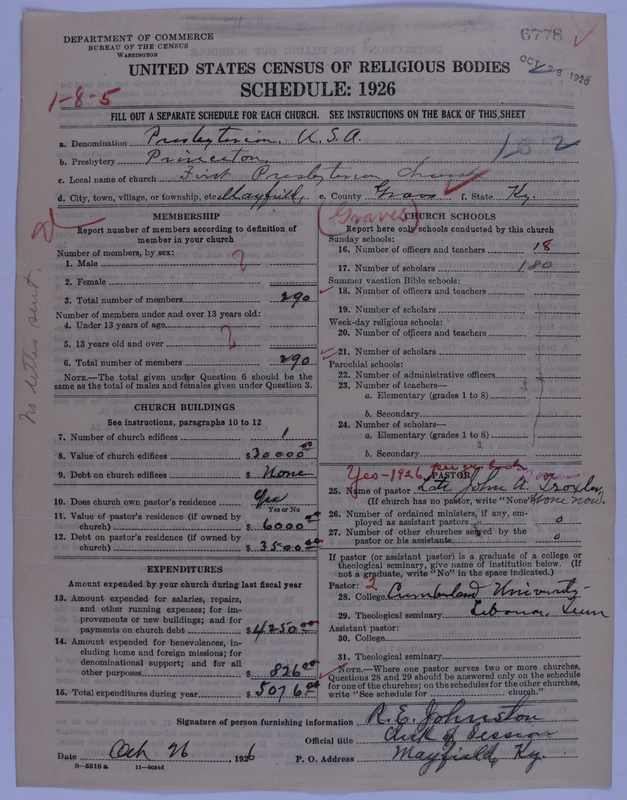 6778
DEPARTMENT OF COMMERCE
BUREAU OF THE CENSUS
WASHINGTON
OCT 29 1926
UNITED STATES CENSUS OF RELIGIOUS BODIES
SCHEDULE: 1926
1-8-5
FILL OUT A SEPARATE SCHEDULE FOR EACH CHURCH. SEE INSTRUCTIONS ON THE BACK OF THIS SHEET
a. Denomination Presbyterian, U.S.A.
b. Presbytery Princeton
c. Local name of church First Presbyterian Church
d. City, town, village, or township, etc. Mayfield, e. County Graves f. State Ky.
(Graves)
No letter sent
MEMBERSHIP
Report number of members according to definition of
member in your church
Number of members, by sex:
1. Male
2. Female
3. Total number of members 290
Number of members under and over 13 years old:
4. Under 13 years of age
5. 13 years old and over
6. Total number of members 290
NOTE.—The total given under Question 6 should be the
same as the total of males and females given under Question 3.
CHURCH BUILDINGS
See instructions, paragraphs 10 to 12
7. Number of church edifices 1
8. Value of church edifices $30000.00
9. Debt on church edifices $None
10. Does church own pastor's residence Yes
Yes or No
11. Value of pastor's residence (if owned by
church) $6000.00
12. Debt on pastor's residence (if owned by
church) $3500.00
EXPENDITURES
Amount expended by your church during last fiscal year
13. Amount expended for salaries, repairs,
and other running expenses; for im-
provements or new buildings; and for
payments on church debt $4250.00
14. Amount expended for benevolences, in-
cluding home and foreign missions; for
denominational support; and for all
other purposes $826.00
15. Total expenditures during year $5076.00
CHURCH SCHOOLS
Report here only schools conducted by this church
Sunday schools:
16. Number of officers and teachers 18
17. Number of scholars 180
Summer vacation Bible schools:
18. Number of officers and teachers
19. Number of scholars
Week-day religious schools:
20. Number of officers and teachers
21. Number of scholars
Parochial schools:
22. Number of administrative officers
23. Number of teachers—
a. Elementary (grades 1 to 8)
b. Secondary
24. Number of scholars—
a. Elementary (grades 1 to 8)
b. Secondary
Yes-1926
PASTOR
25. Name of pastor Late John A. Troxler,
(If church has no pastor, write "None") (None now).
26. Number of ordained ministers, if any, em-
ployed as assistant pastors 0
27. Number of other churches served by the
pastor or his assistants 0
If pastor (or assistant pastor) is a graduate of a college or
theological seminary, give name of institution below. (If
not a graduate, write "No" in the space indicated.)
Pastor: 2
28. College Cumberland University
29. Theological seminary Lebanon, Tenn
Assistant pastor:
30. College
31. Theological seminary
NOTE.—Where one pastor serves two or more churches,
Questions 28 and 29 should be answered only on the schedule
for one of the churches; on the schedules for the other churches,
write "See schedule for church."
Signature of person furnishing information R. E. Johnston
Official title Clerk of Session
Date Oct 26, 1926 P. O. Address Mayfield, Ky.
8—5518a 11—9084a